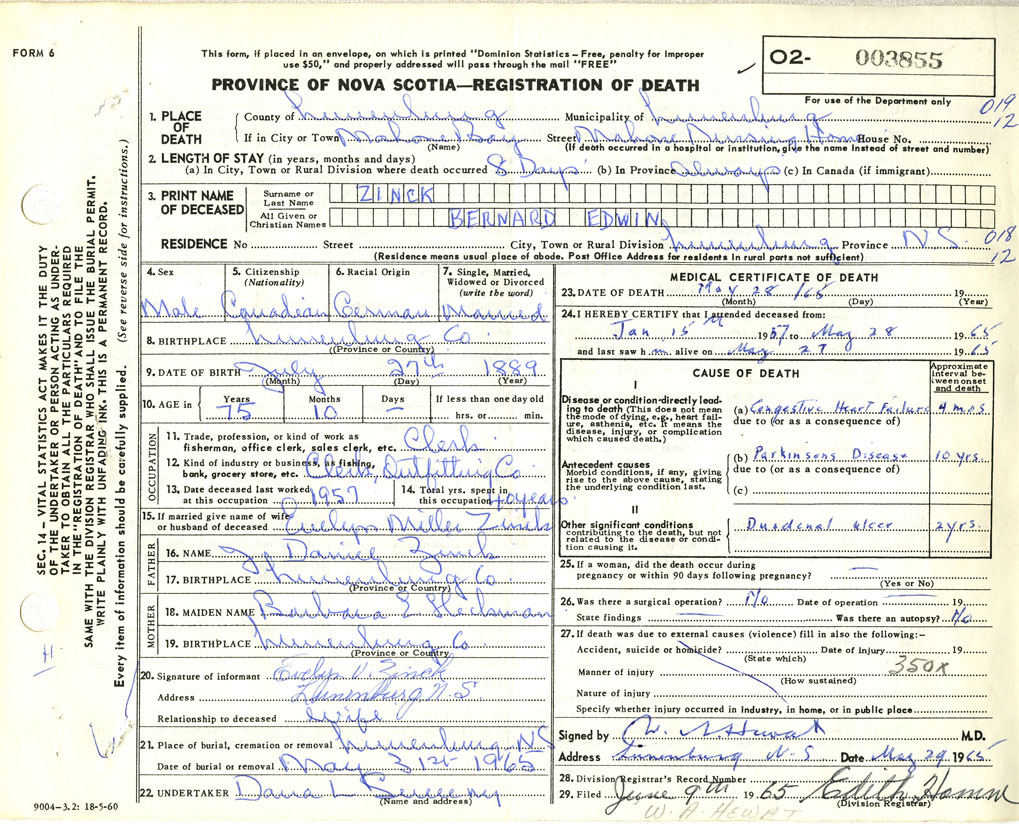 FORM 6
This form, if placed in an envelope, on which is printed "Dominion Statistics – Free, penalty for improper
use $50," and properly addressed will pass through the mail "FREE"
02- 003855
PROVINCE OF NOVA SCOTIA—REGISTRATION OF DEATH
For use of the Department only
019
12
1. PLACE OF DEATH
County of Lunenburg Municipality of Lunenburg
If in City or Town Mahone Bay Street Mahone Nursing Home House No.
(Name) (If death occurred in a hospital or institution, give the name instead of street and number)
2. LENGTH OF STAY (in years, months and days)
(a) In City, Town or Rural Division where death occurred 8 Days (b) In Province always (c) In Canada (if immigrant)
3. PRINT NAME OF DECEASED
Surname or Last Name ZINCK
All Given or Christian Names BERNARD EDWIN
RESIDENCE No Street City, Town or Rural Division Lunenburg Province N.S. 018
12
(Residence means usual place of abode. Post Office Address for residents in rural parts not sufficient)
4. Sex 5. Citizenship (Nationality) 6. Racial Origin 7. Single, Married, Widowed or Divorced (write the word)
Male Canadian German Married
8. BIRTHPLACE Lunenburg Co.
(Province or Country)
9. DATE OF BIRTH July 27th 1889
(Month) (Day) (Year)
10. AGE in Years Months Days If less than one day old
75 10 – hrs. or min.
OCCUPATION
11. Trade, profession, or kind of work as
fisherman, office clerk, sales clerk, etc. Clerk
12. Kind of industry or business, as fishing,
bank, grocery store, etc. Clerk, Outfitting Co
13. Date deceased last worked at this occupation 1957
14. Total yrs. spent in this occupation 40 years
15. If married give name of wife
or husband of deceased Evelyn Miller Zinck
FATHER
16. NAME Daniel Zinck
17. BIRTHPLACE Lunenburg Co
(Province or Country)
MOTHER
18. MAIDEN NAME Barbara E
19. BIRTHPLACE Lunenburg Co
(Province or Country)
20. Signature of informant Evelyn V. Zinck
Address Lunenburg N.S
Relationship to deceased Wife
21. Place of burial, cremation or removal Lunenburg NS
Date of burial or removal May 31st 1965
22. UNDERTAKER Dana L
(Name and address)
9004–3.2: 18-5-60
MEDICAL CERTIFICATE OF DEATH
23. DATE OF DEATH May 28 /65 19
(Month) (Day) (Year)
24. I HEREBY CERTIFY that I attended deceased from:
Jan 15 1957 to May 28 1965
and last saw h m alive on May 27 1965
CAUSE OF DEATH
Approximate interval between onset and death
I
Disease or condition directly leading to death (This does not mean
the mode of dying, e.g., heart failure, asthenia, etc. It means the
disease, injury, or complication which caused death.)
(a) Congestive Heart Failure 4 mos
due to (or as a consequence of)
Antecedent causes
Morbid conditions, if any, giving
rise to the above cause, stating
the underlying condition last.
(b) Parkinsons Disease 10 yrs.
due to (or as a consequence of)
(c)
II
Other significant conditions
contributing to the death, but not
related to the disease or condition causing it.
Duodenal ulcer 2 yrs.
25. If a woman, did the death occur during
pregnancy or within 90 days following pregnancy? —
(Yes or No)
26. Was there a surgical operation? No Date of operation 19
State findings Was there an autopsy? No
27. If death was due to external causes (violence) fill in also the following:–
Accident, suicide or homicide? Date of injury 19
(State which)
350X
Manner of injury
(How sustained)
Nature of injury
Specify whether injury occurred in industry, in home, or in public place
Signed by W. A Hewat M.D.
Address Lunenburg N.S Date May 29 1965
28. Division Registrar's Record Number
29. Filed June 9th 1965 Edith
(Division Registrar)
W. A. HEWAT
SEC. 14 – VITAL STATISTICS ACT MAKES IT THE DUTY
OF THE UNDERTAKER OR PERSON ACTING AS UNDER-
TAKER TO OBTAIN ALL THE PARTICULARS REQUIRED
IN THE "REGISTRATION OF DEATH" AND TO FILE THE
SAME WITH THE DIVISION REGISTRAR WHO SHALL ISSUE THE BURIAL PERMIT.
WRITE PLAINLY WITH UNFADING INK. THIS IS A PERMANENT RECORD.
Every item of information should be carefully supplied. (See reverse side for instructions.)